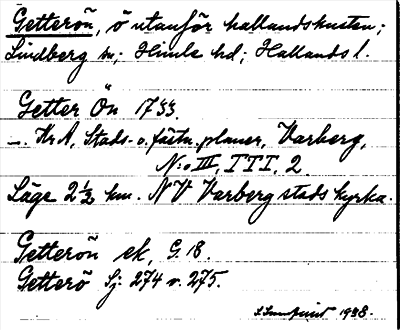 Getterön, ö utanför hallandskusten;
Lindberg sn; Himle hd; Hallands l.
Getter Ön 1733.
–. Kr A, Stads- o. fästn. planer, Varberg,
N:o III, ITI, 2.
Läge 2 ½ km. NV Varberg stads kyrka.
Getterön ek, G. 18.
Getterö Sj: 274 o. 275.
1938.